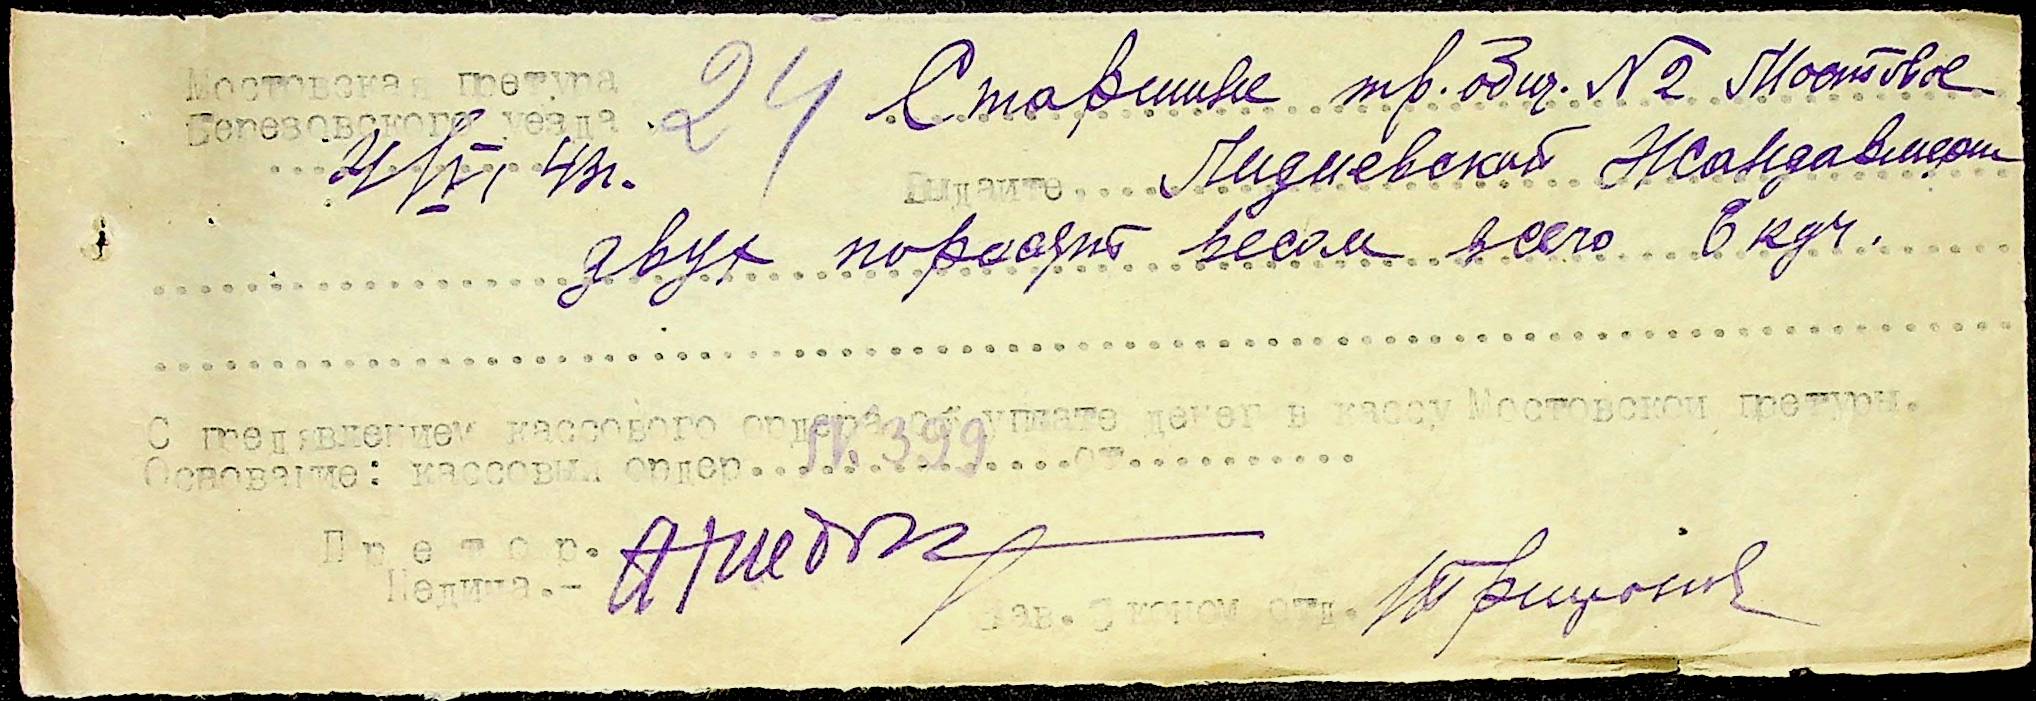 Мостовская претура
Березовского уезда
24
Старшине тр. общ. № 2 Мостовое
4/VI, 43г.
Выдайте Лидиевской Жандармерии
двух поросят весом всего 6 кгч.
С предявлением кассового ордера об уплате денег в кассу Мостовской претуры.
Основание: кассовый ордер № 399 от
Претор.
Недича.-
Зав. Эконом отд.